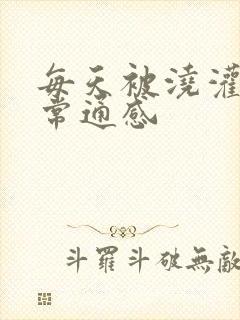 每天被澆灌
常通感
斗羅斗破無敵